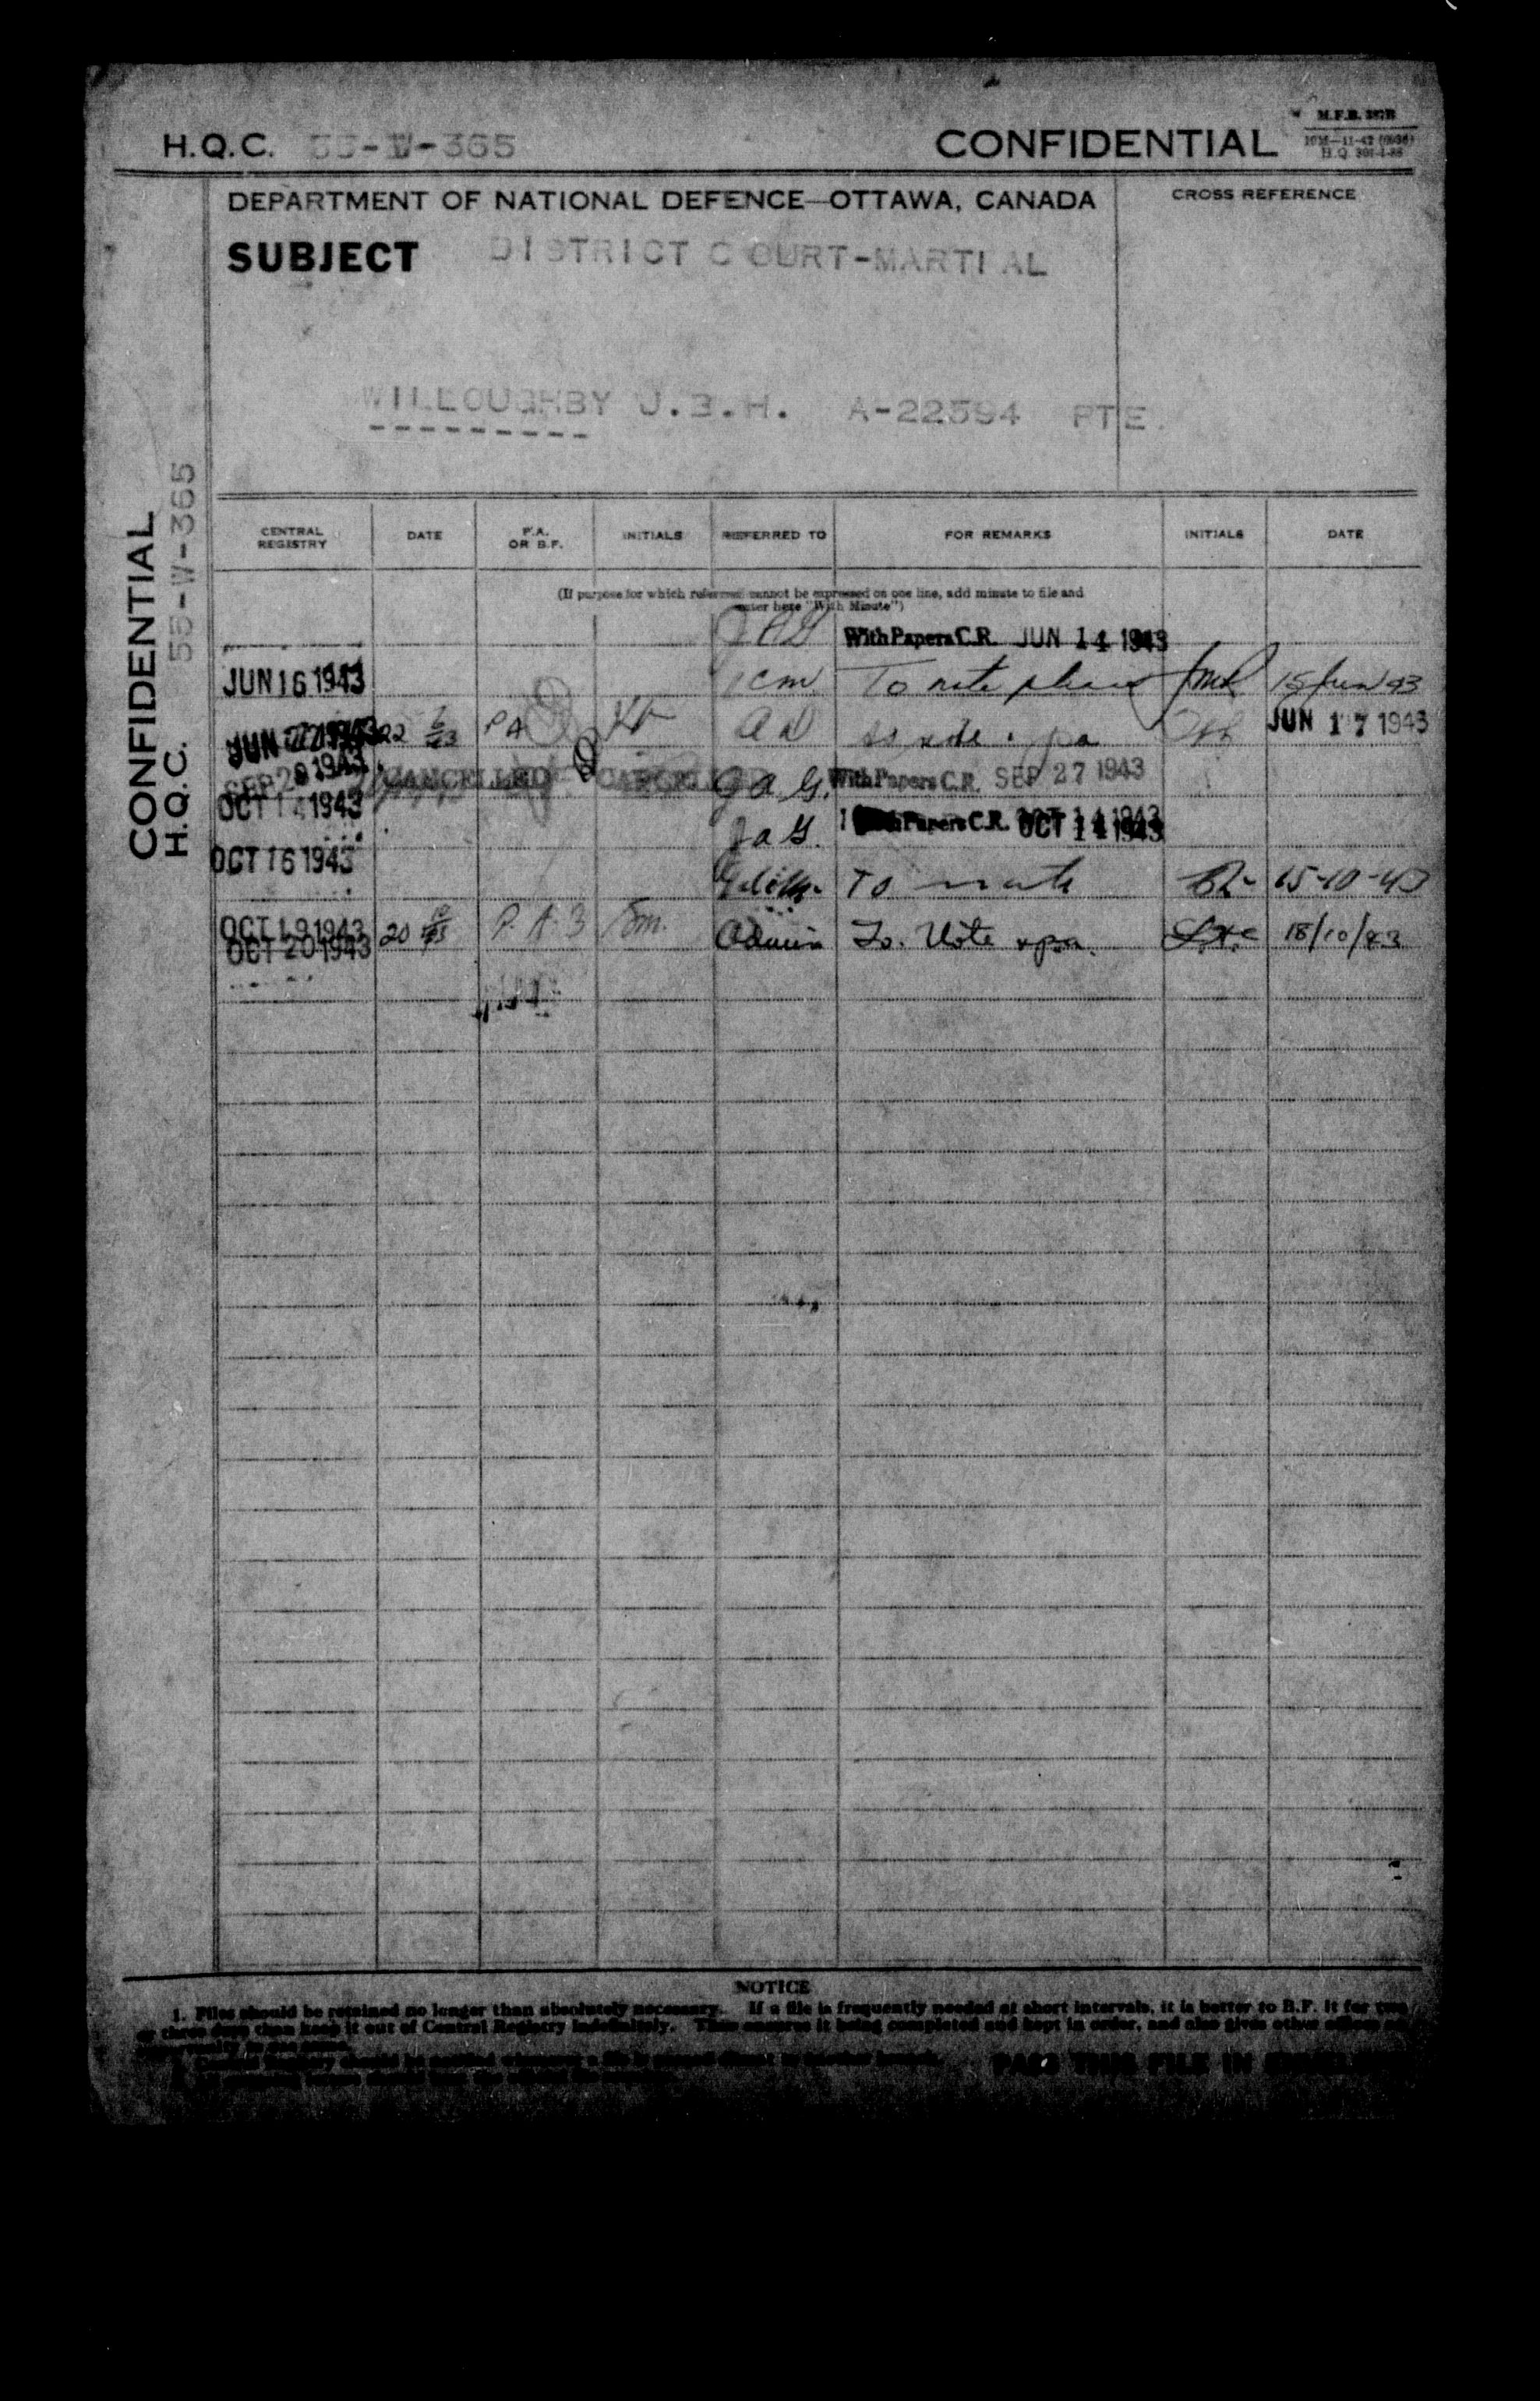 H.Q.C. 55-W-365
CONFIDENTIAL
M.F.B.
DEPARTMENT OF NATIONAL DEFENCE—OTTAWA, CANADA
CROSS REFERENCE
SUBJECT DISTRICT COURT-MARTIAL
WILLOUGHBY J.E.H. A-22594 PTE.
CONFIDENTIAL
H.Q.C. 55-W-365
CENTRAL REGISTRY DATE P.A. OR B.F. INITIALS REFERRED TO FOR REMARKS INITIALS DATE
(If purpose for which reference cannot be expressed on one line, add minute to file and
enter here "With Minute")
JAG With Papers C.R. JUN 14 1943
JUN 16 1943 To note please 15 Jun 43
JUN 22 1943 22 PA AD JUN 17 1943
SEP 28 1943 CANCELLED CANCELLED JAG. With Papers C.R. SEP 27 1943
OCT 14 1943 JAG. With Papers C.R. OCT 14 1943
OCT 16 1943 To note 15-10-43
OCT 19 1943
OCT 20 1943 20 P.A. Admin To Note & pa. 18/10/43
NOTICE
1. Files should be retained no longer than absolutely necessary. If a file is frequently needed at short intervals, it is better to B.F. it for two
or three days than keep it out of Central Registry indefinitely. This ensures it being completed and kept in order, and also gives other offices
PASS THIS FILE IN